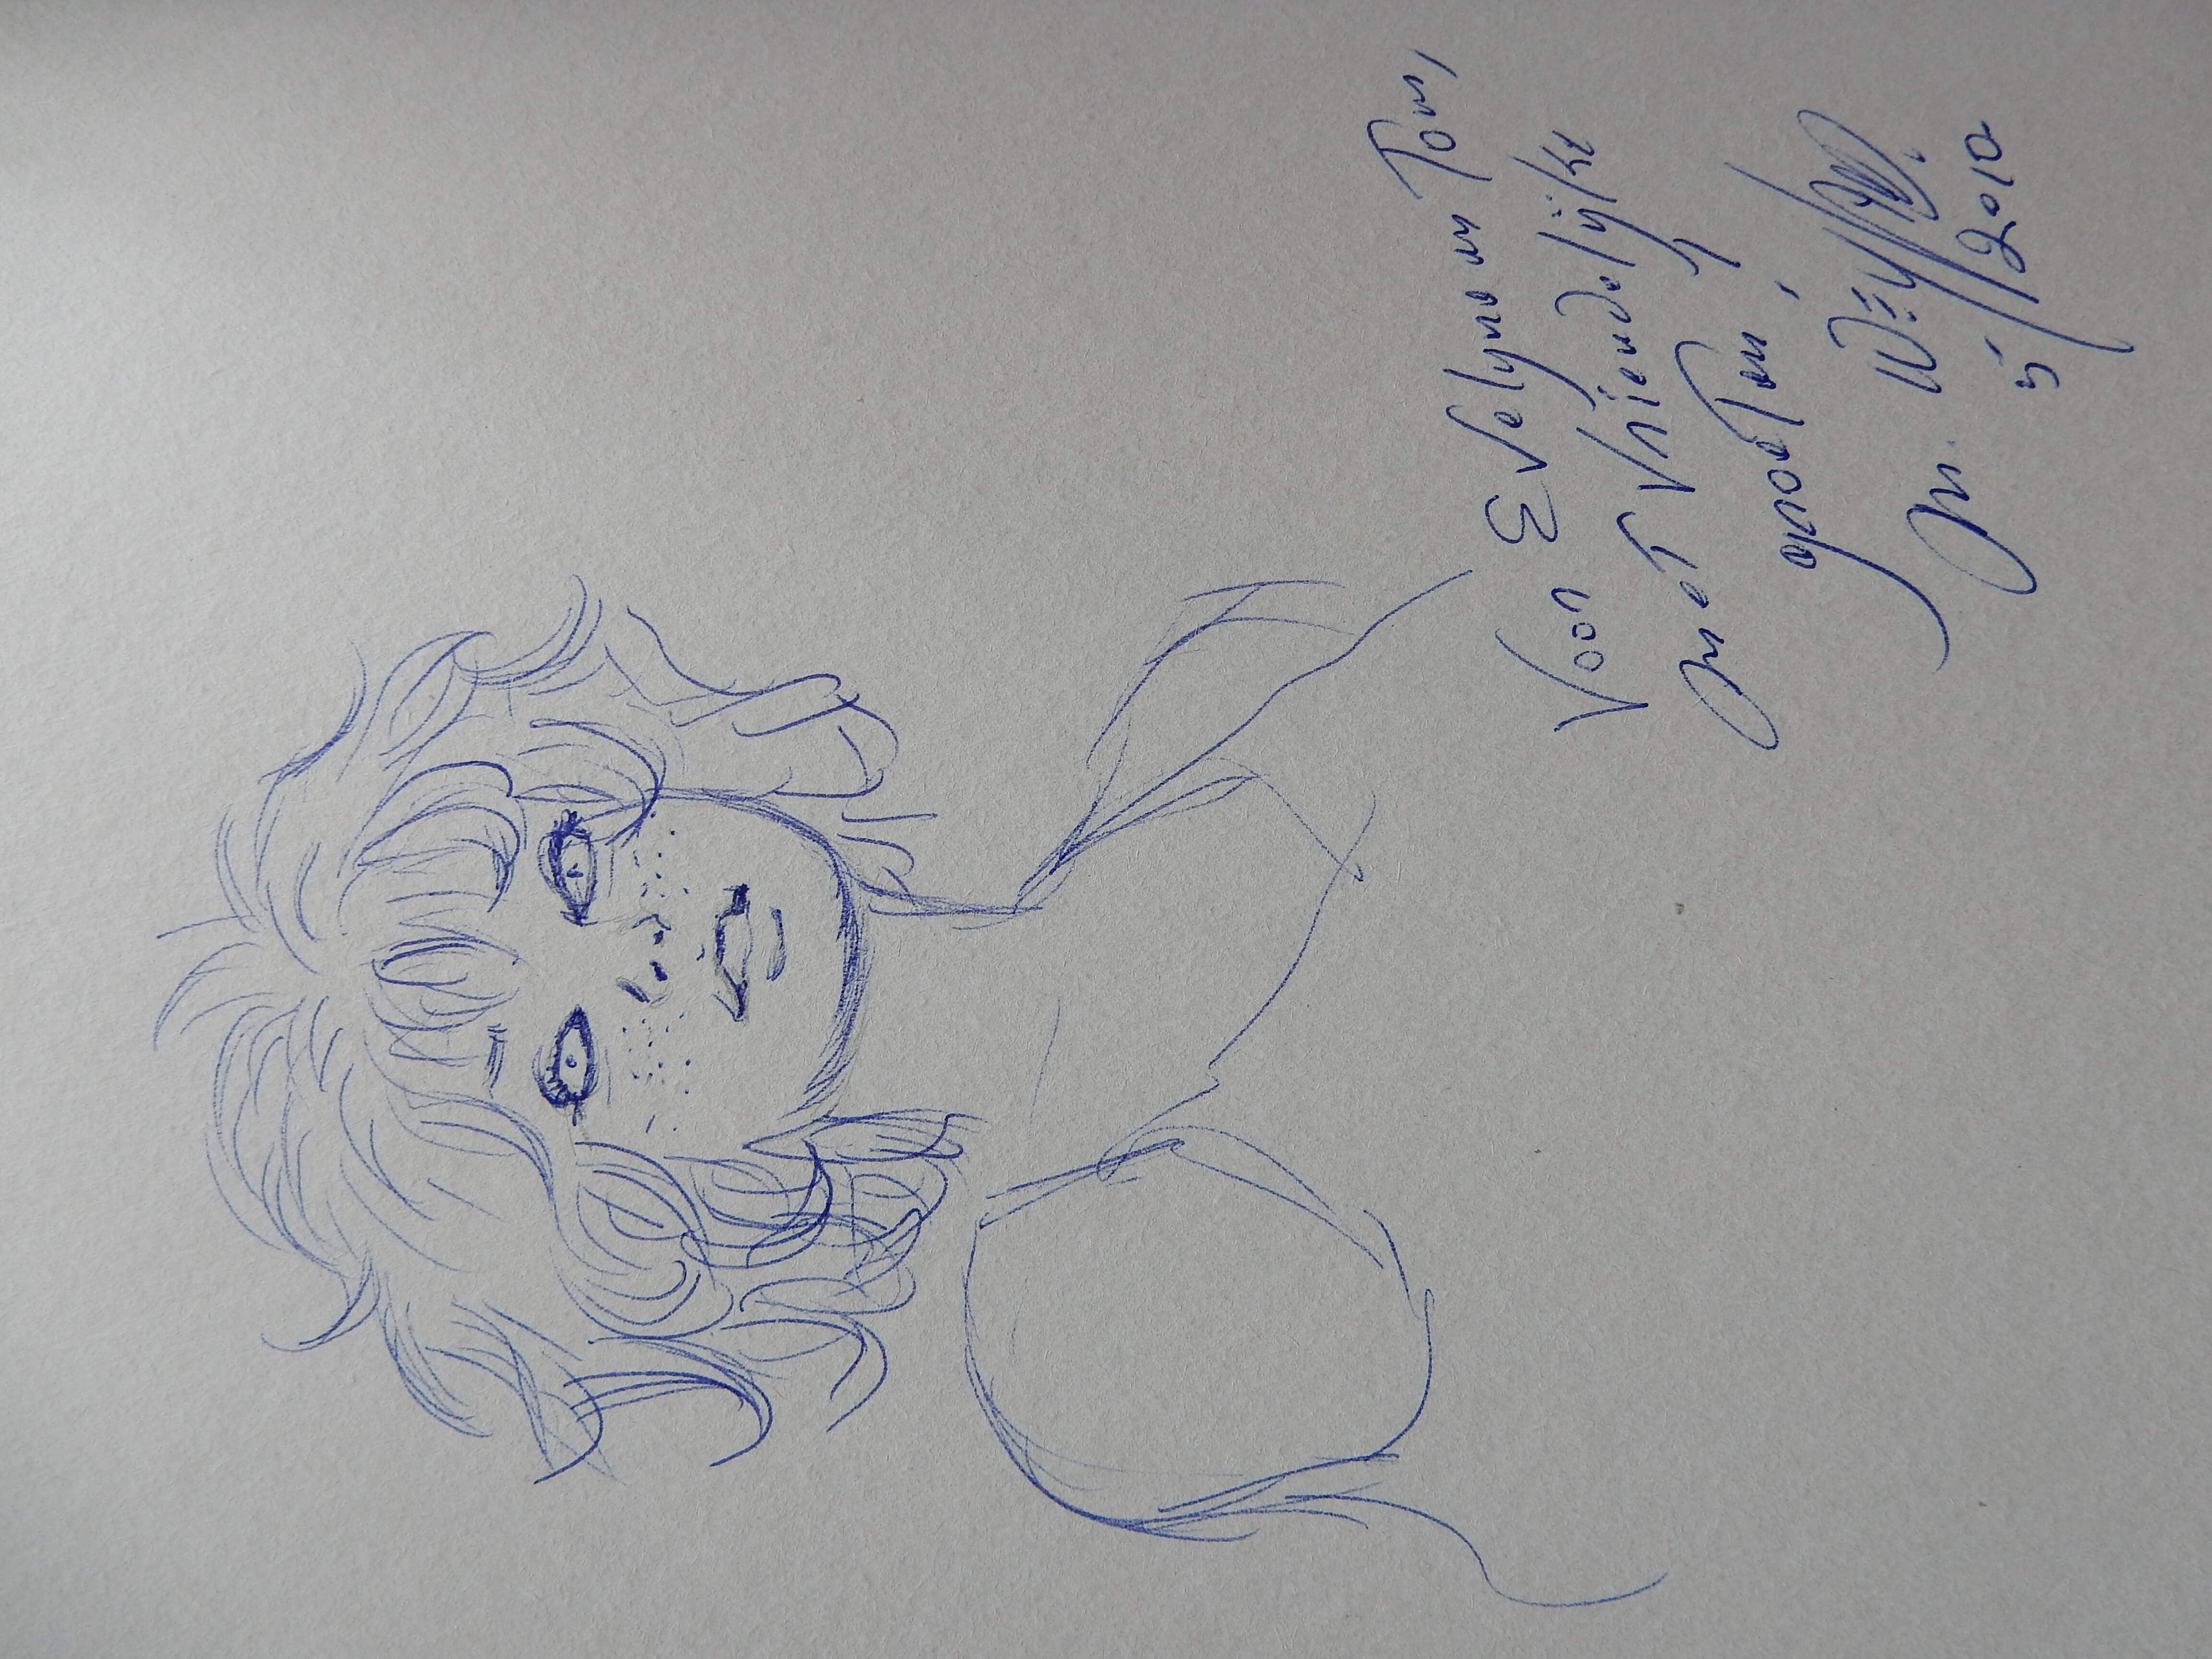 Voor Evelyne en Tom,
met vriendelijke
groeten !
M. Weyland.
5/2010